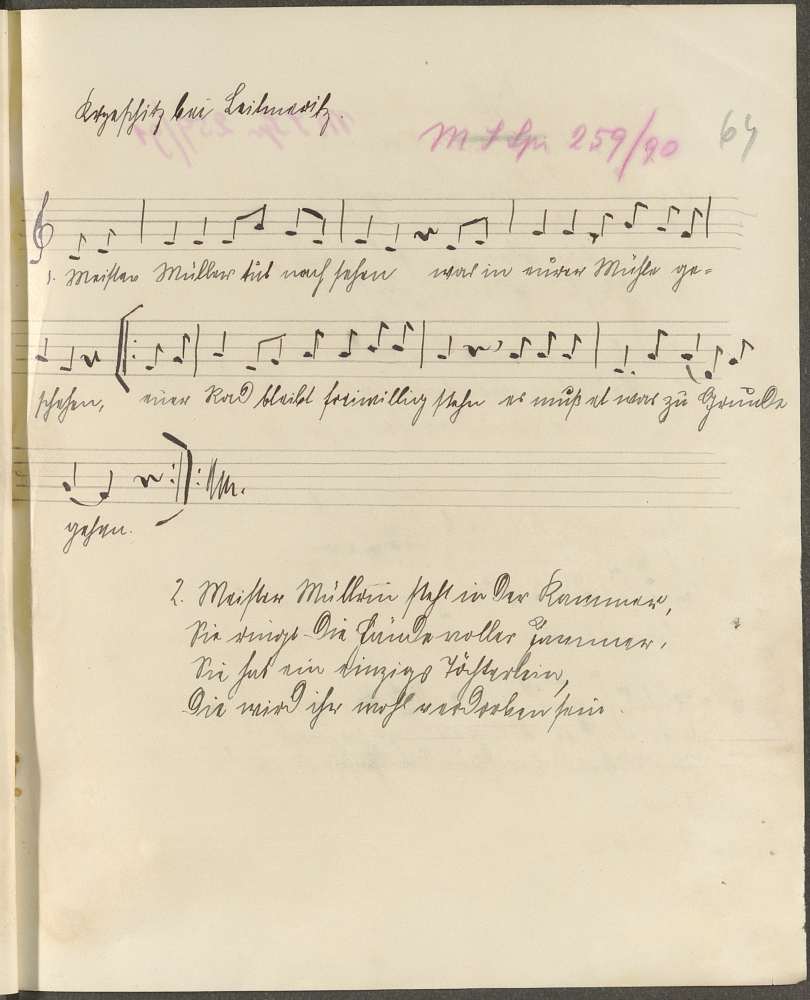 Krzeschitz bei Leitmeritz.
259/90 64
1. Meister Müller tut nach sehen was in eurer Mühle ge=
schehen, euer Rad bleibt freiwillig stehn es muß et was zu Grunde
gehen.
2. Meister Müllrin steht in der Kammer,
Sie ringt die Hände voller Jammer,
Sie hat ein einzigs Töchterlein,
Die wird ihr wohl verdorben sein.